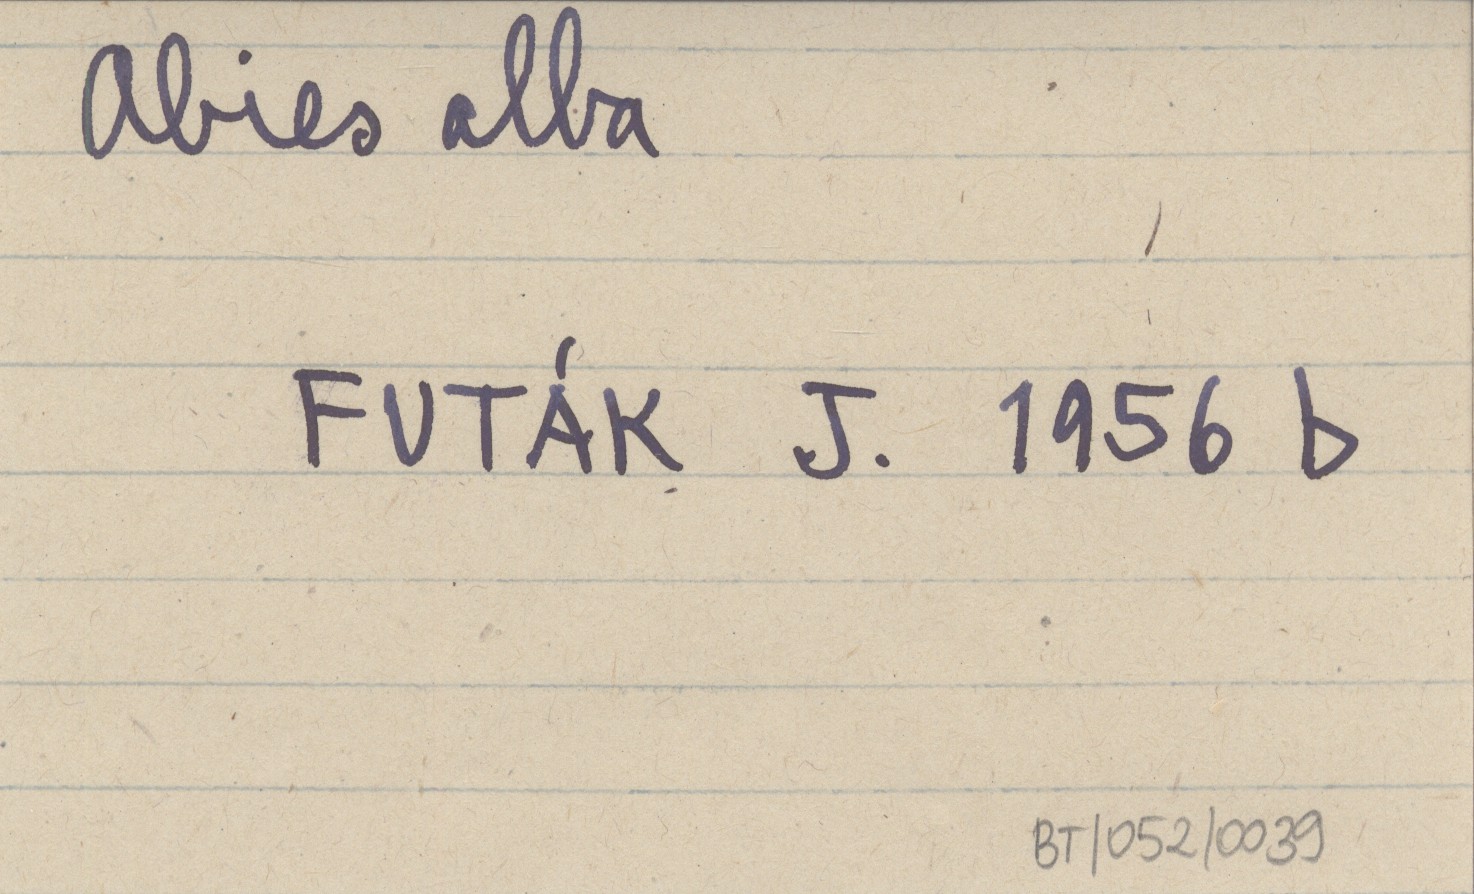 Abies alba
FUTÁK J. 1956 b
BT/052/0039